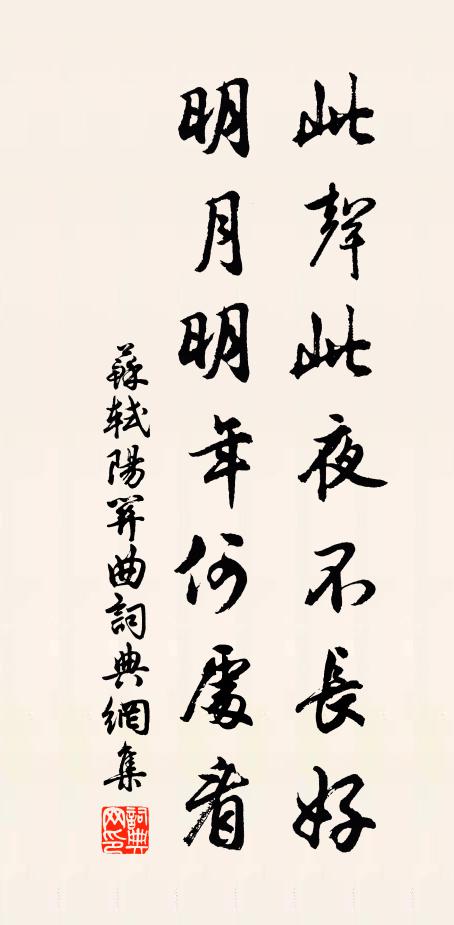 此聲此夜不長好
明月明年何處看
蘇軾陽關曲詞典網集
詞典网印